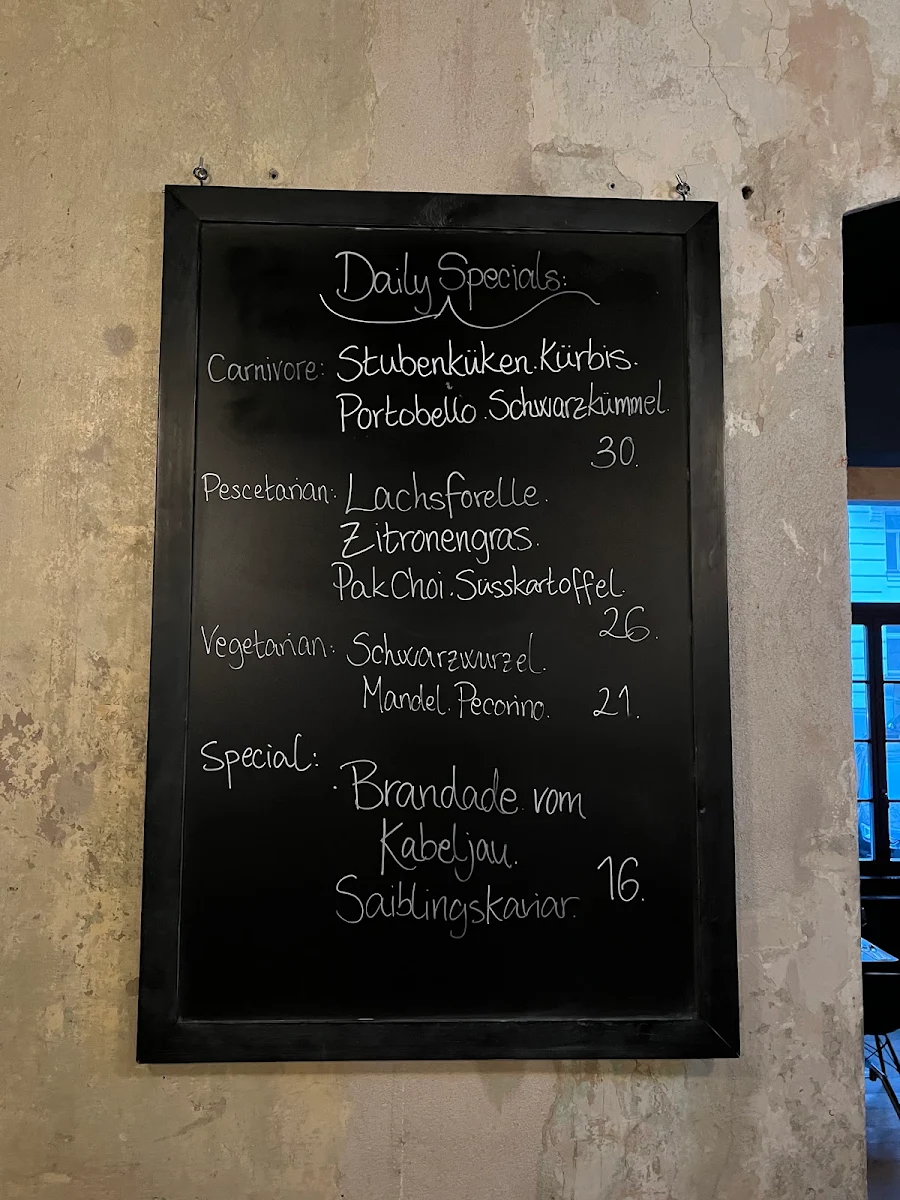 Daily Specials:
Carnivore: Stubenküken. Kürbis.
Portobello. Schwarzkümmel.
30.
Pescetarian: Lachsforelle.
Zitronengras.
Pak Choi. Süsskartoffel.
26.
Vegetarian: Schwarzwurzel.
Mandel. Pecorino. 21.
Special:
Brandade vom
Kabeljau.
Saiblingskaviar. 16.